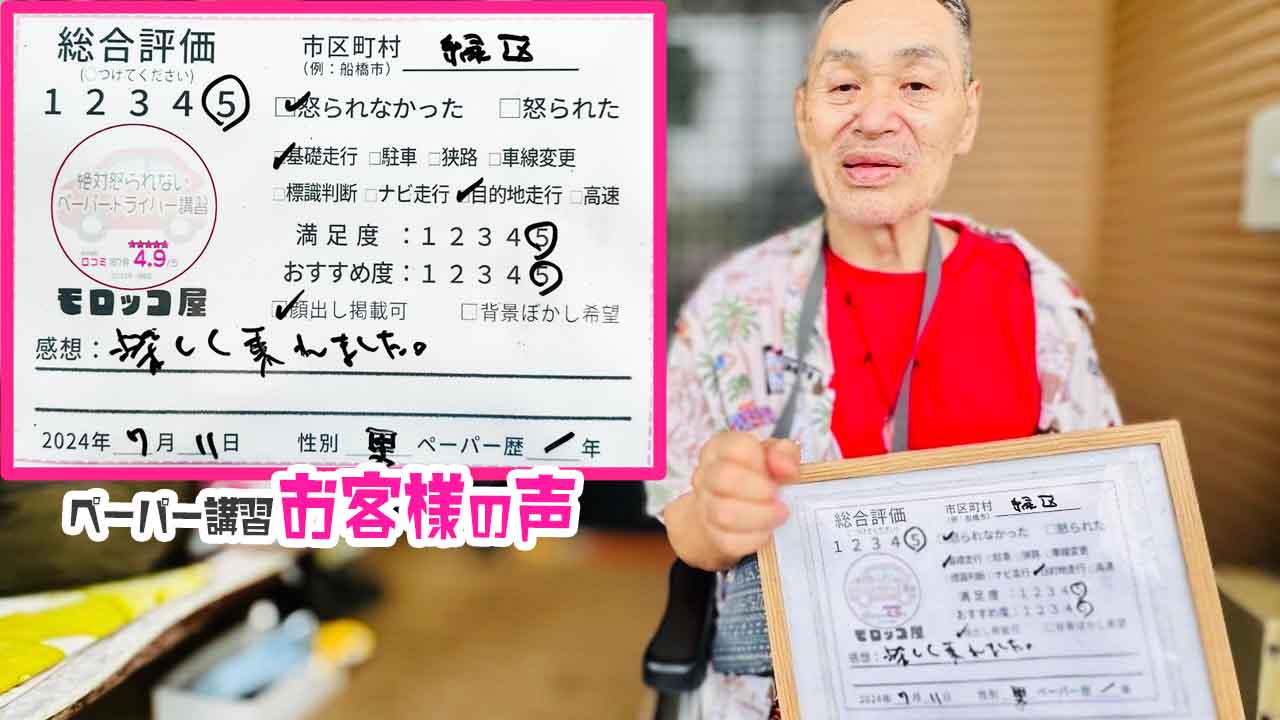 総合評価
(○つけてください)
1 2 3 4 5
市区町村 緑区
(例：船橋市)
怒られなかった 怒られた
基礎走行 駐車 狭路 車線変更
標識判断 ナビ走行 目的地走行 高速
満足度：1 2 3 4 5
おすすめ度：1 2 3 4 5
顔出し掲載可 背景ぼかし希望
絶対怒られない
ペーパードライバー講習
口コミ 4.9/5
モロッコ屋
感想：楽しく乗れました。
2024年 7月 11日 性別 男 ペーパー歴 1年
ペーパー講習 お客様の声
総合評価
1 2 3 4 5
市区町村 緑区
(例：船橋市)
怒られなかった 怒られた
基礎走行 駐車 狭路 車線変更
標識判断 ナビ走行 目的地走行 高速
満足度：1 2 3 4 5
おすすめ度：1 2 3 4 5
顔出し掲載可 背景ぼかし希望
モロッコ屋
感想：楽しく乗れました。
2024年 7月 11日 性別 男 ペーパー歴 1年